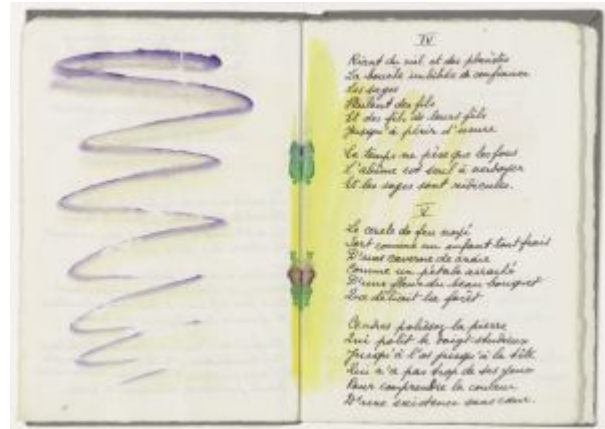 IV
Riant du ciel et des planètes
La bouche imbibée de confiance
Les sages
Veulent des fils
Et des fils de leurs fils
Jusqu'à périr d'usure
Le temps ne pèse que les fous
L'abîme est seul à verdoyer
Et les sages sont ridicules.
V
Le cercle de feu noyé
Sort comme un enfant tout frais
D'une caverne de craie
Comme un pétale
D'une fleur du beau bouquet
Que la forêt
Cendres polissez la pierre
Qui polit le doigt studieux
Jusqu'à l'os jusqu'à la tête
Qui n'a pas trop de ses yeux
Pour comprendre la couleur
D'une existence sans cœur.